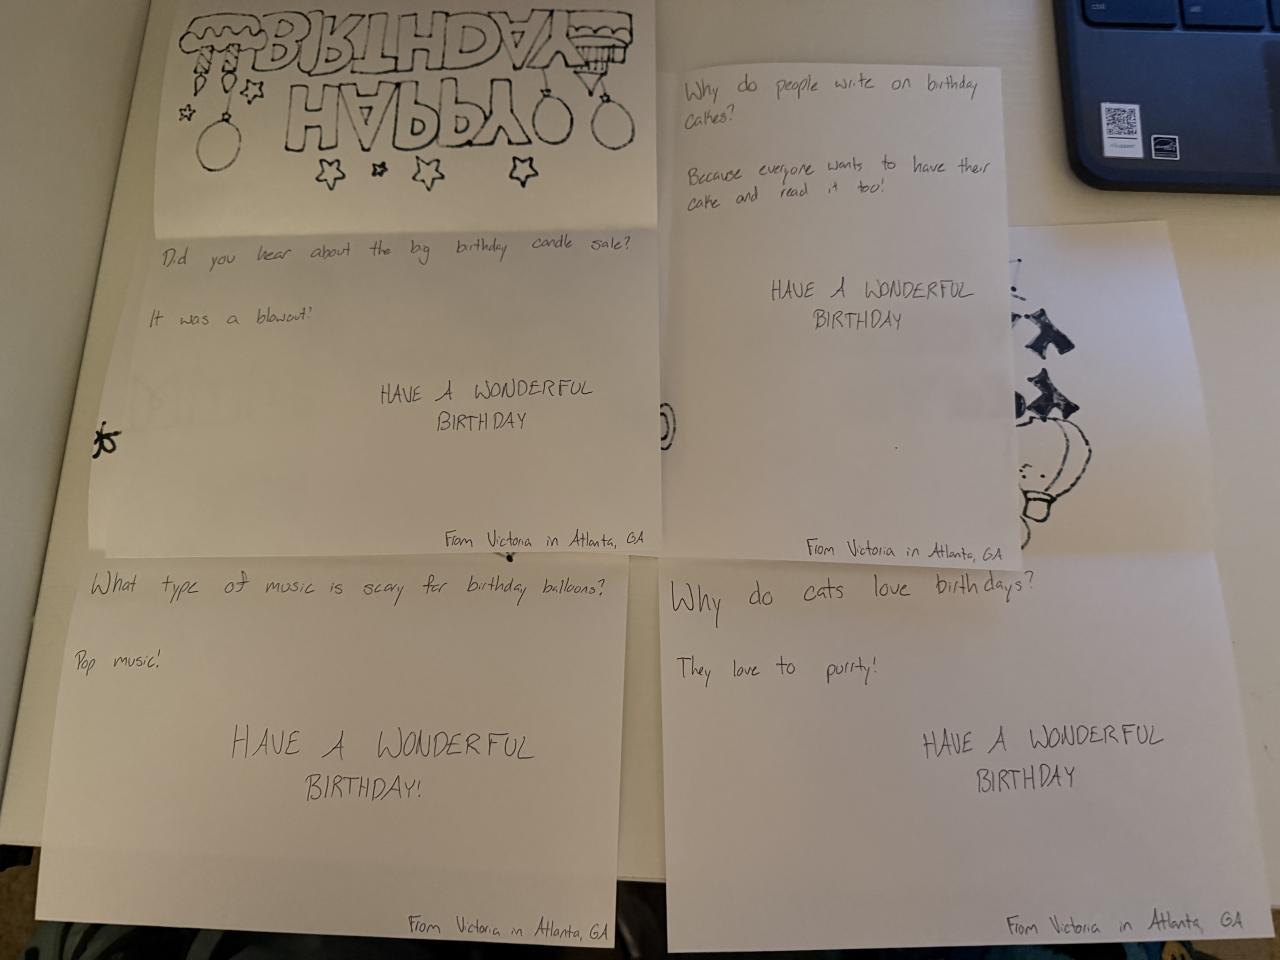 BIRTHDAY
HAPPY
Did you hear about the big birthday candle sale?
It was a blowout!
HAVE A WONDERFUL
BIRTHDAY
From Victoria in Atlanta, GA
Why do people write on birthday
cakes?
Because everyone wants to have their
cake and read it too!
HAVE A WONDERFUL
BIRTHDAY
From Victoria in Atlanta, GA
What type of music is scary for birthday balloons?
Pop music!
HAVE A WONDERFUL
BIRTHDAY!
From Victoria in Atlanta, GA
Why do cats love birthdays?
They love to purrty!
HAVE A WONDERFUL
BIRTHDAY
From Victoria in Atlanta, GA
ctrl
alt